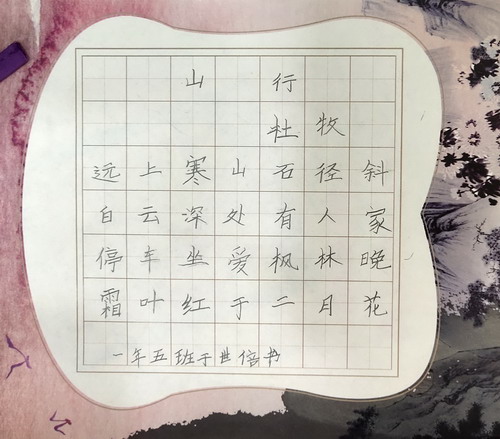 山行
杜牧
远上寒山石径斜
白云深处有人家
停车坐爱枫林晚
霜叶红于二月花
一年五班于世倍书